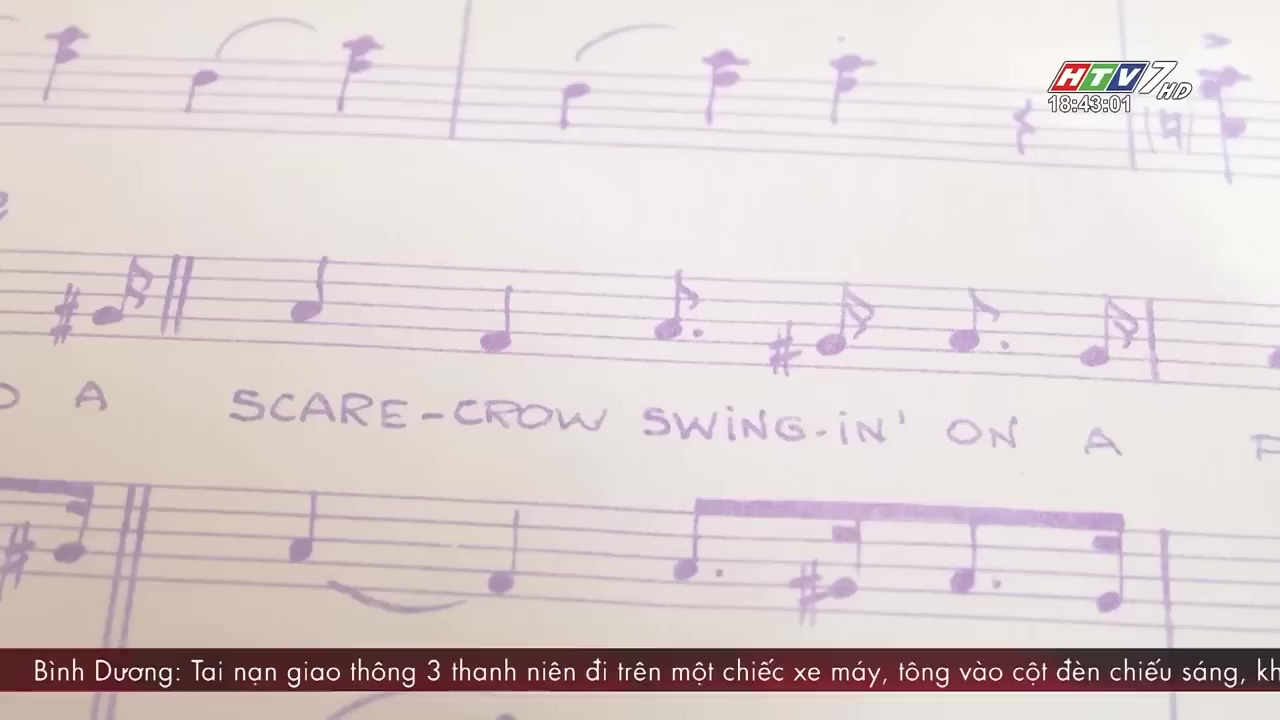 HTV7 HD
18:43:01
A SCARE-CROW SWiNG-iN' ON A
Bình Dương: Tai nạn giao thông 3 thanh niên đi trên một chiếc xe máy, tông vào cột đèn chiếu sáng,